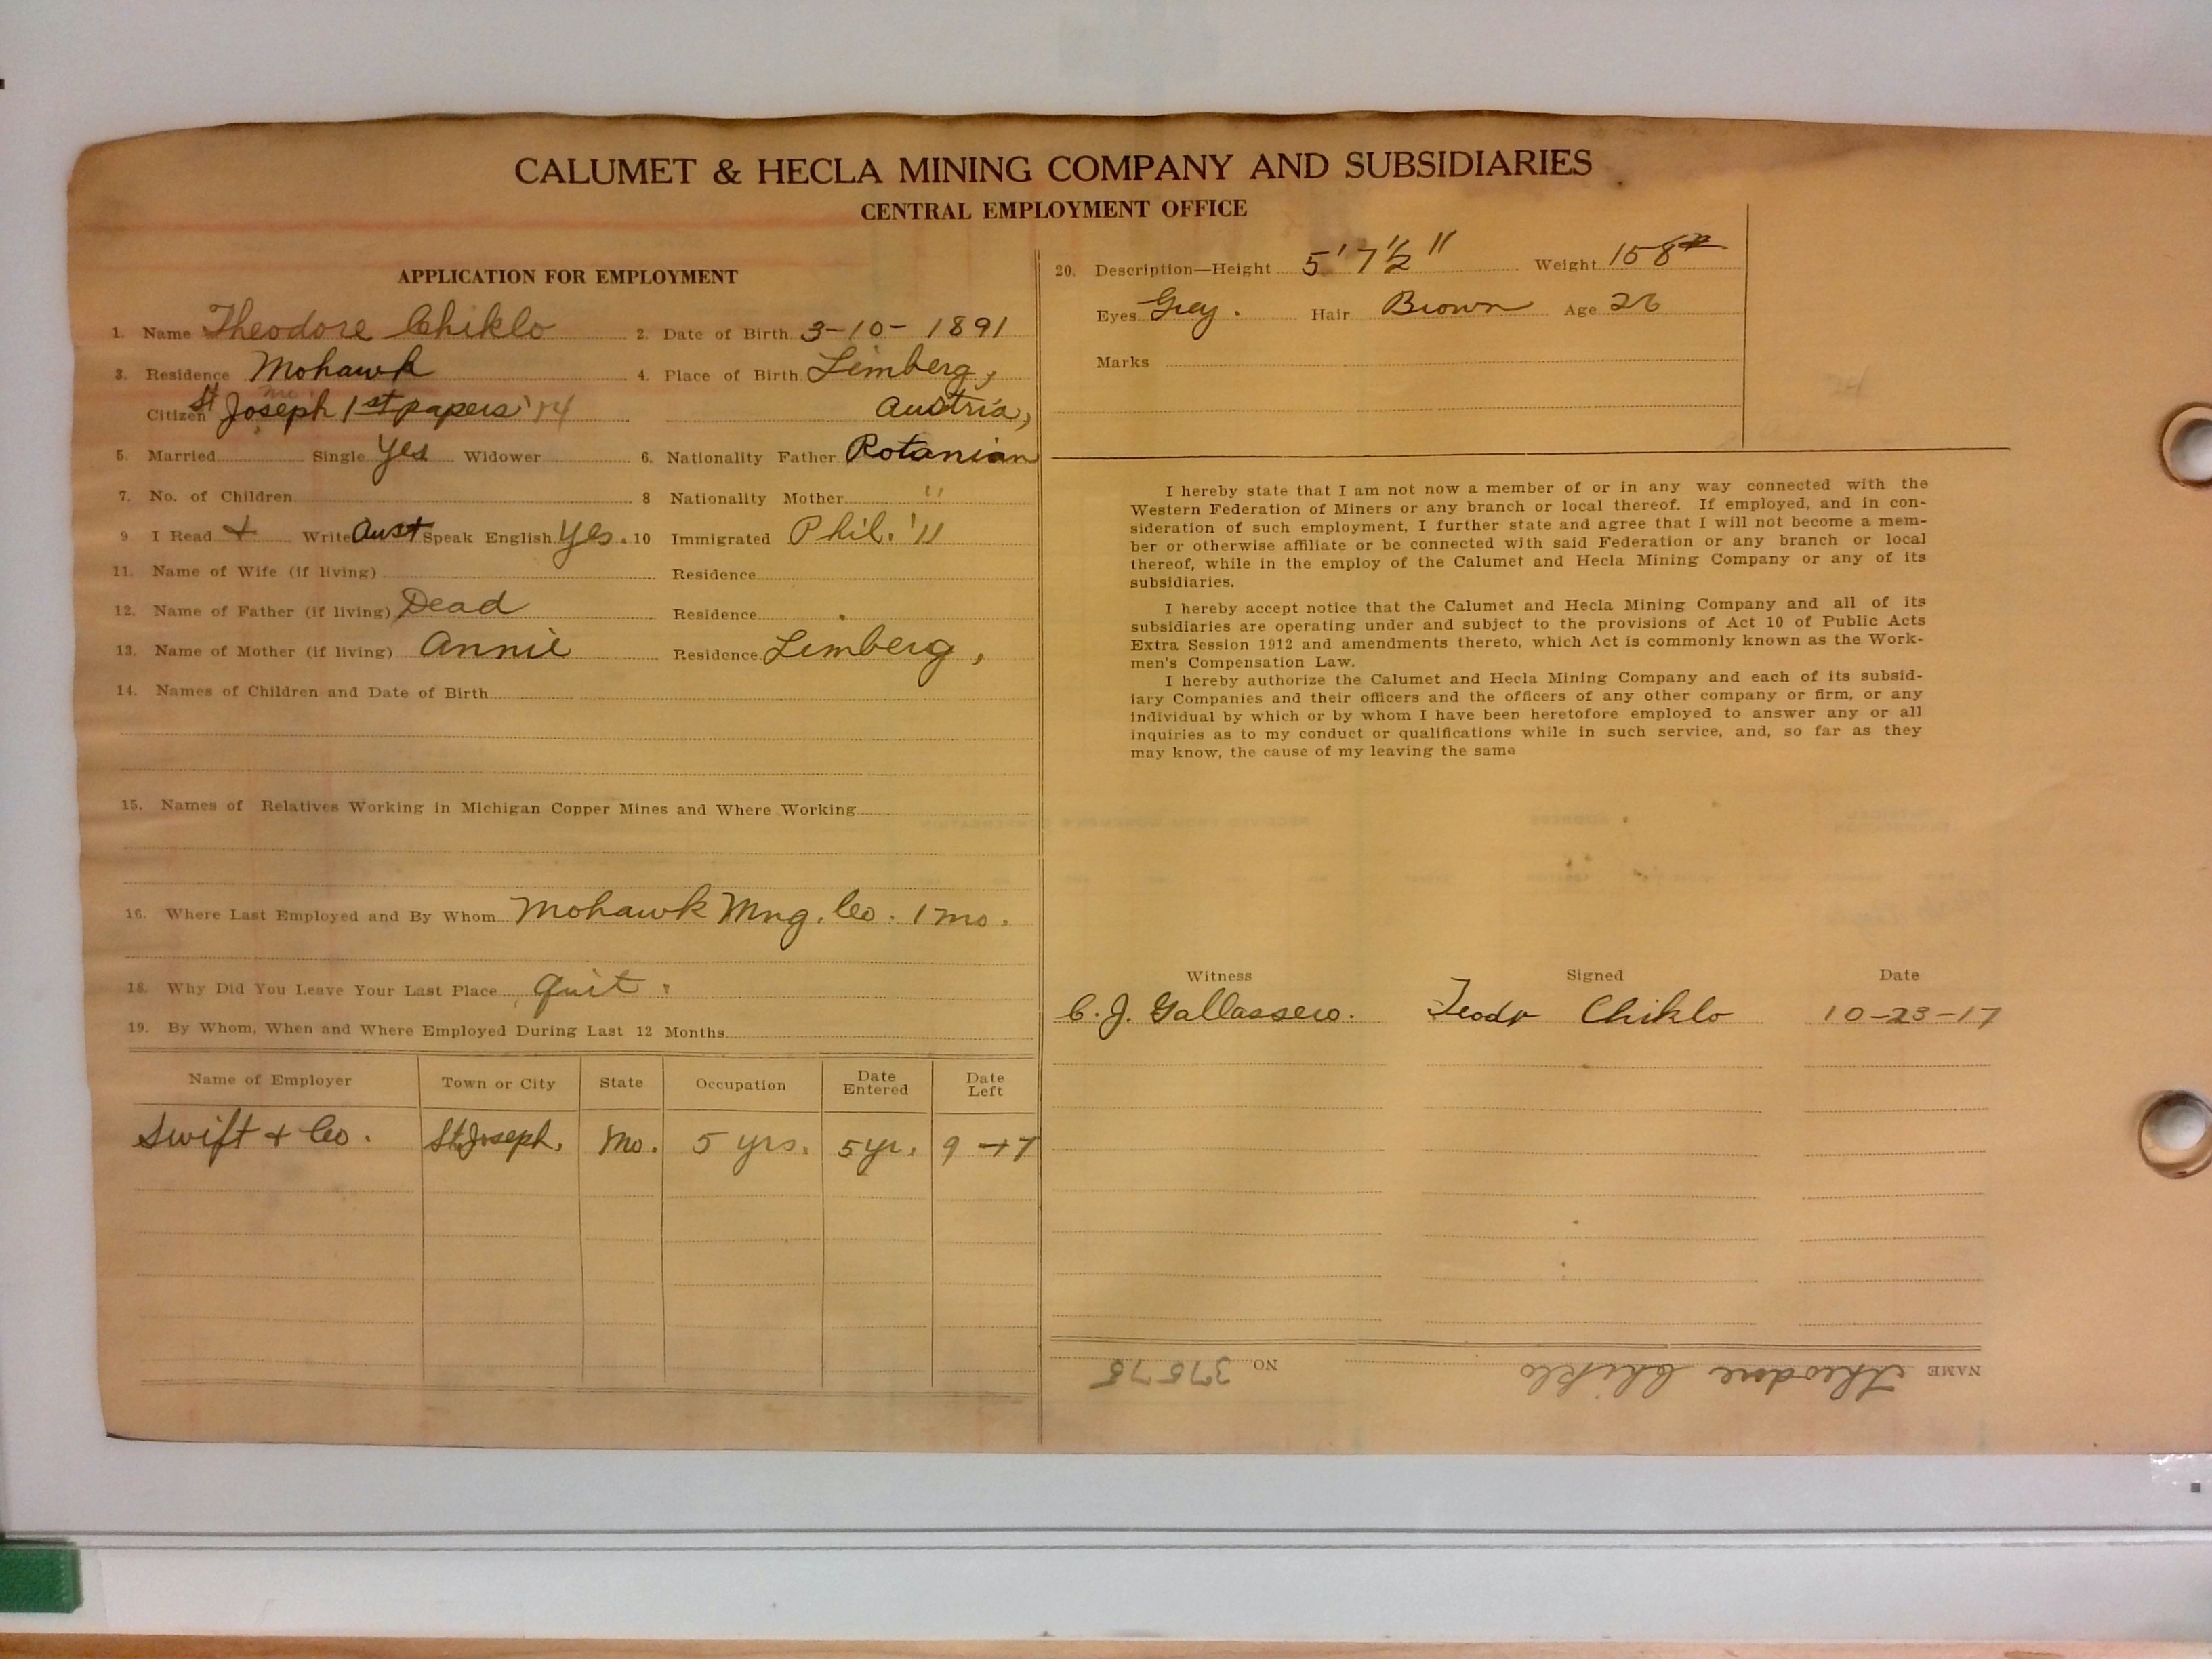 CALUMET & HECLA MINING COMPANY AND SUBSIDIARIES
CENTRAL EMPLOYMENT OFFICE
APPLICATION FOR EMPLOYMENT
1. Name Theodore Chiklo 2. Date of Birth 3-10-1891
3. Residence Mohawk 4. Place of Birth Limberg,
Citizen St Joseph mo 1st papers '14 Austria,
5. Married Single Yes Widower 6. Nationality Father Rotanian
7. No. of Children 8 Nationality Mother "
9 I Read + Write Aust Speak English Yes. 10 Immigrated Phil. '11
11. Name of Wife (if living) Residence
12. Name of Father (if living) Dead Residence
13. Name of Mother (if living) Annie Residence Limberg,
14. Names of Children and Date of Birth
15. Names of Relatives Working in Michigan Copper Mines and Where Working
16. Where Last Employed and By Whom Mohawk Mng. Co. 1 mo.
18. Why Did You Leave Your Last Place quit.
19. By Whom, When and Where Employed During Last 12 Months
Name of Employer Town or City State Occupation Date Entered Date Left
Swift + Co. St Joseph. Mo. 5 yrs. 5 yr. 9-17
20. Description—Height 5' 7½" Weight 158#
Eyes Grey. Hair Brown Age 26
Marks
I hereby state that I am not now a member of or in any way connected with the
Western Federation of Miners or any branch or local thereof. If employed, and in con-
sideration of such employment, I further state and agree that I will not become a mem-
ber or otherwise affiliate or be connected with said Federation or any branch or local
thereof, while in the employ of the Calumet and Hecla Mining Company or any of its
subsidiaries.
I hereby accept notice that the Calumet and Hecla Mining Company and all of its
subsidiaries are operating under and subject to the provisions of Act 10 of Public Acts
Extra Session 1912 and amendments thereto, which Act is commonly known as the Work-
men's Compensation Law.
I hereby authorize the Calumet and Hecla Mining Company and each of its subsid-
iary Companies and their officers and the officers of any other company or firm, or any
individual by which or by whom I have been heretofore employed to answer any or all
inquiries as to my conduct or qualifications while in such service, and, so far as they
may know, the cause of my leaving the same
Witness Signed Date
C. J. Gallassero. Teodr Chiklo 10-23-17
NAME Theodore Chiklo NO. 37575